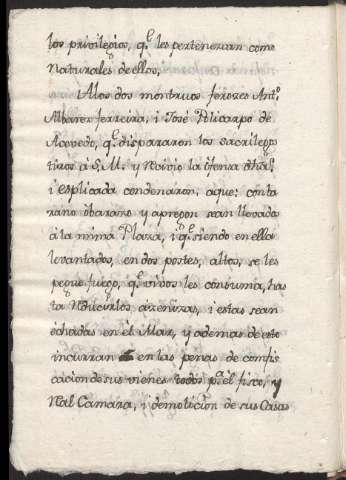 los privilegios, q.e les pertenezcan como
Naturales de ellos,
Alos dos montruos ferozes Ant.o
Albarez ferreira, i José Policarpo de
Acevedo, q.e dispararon los sacrilegos
tiros á S. M. y la ofensa dha.
i esplicada condenáron, aque: con ta
raso ibarazo y apregon sean llevado
á la mima Plaza, i q.e siendo en ella
levantados, en dos postes, altos, se les
pegue fuego, q.e vivos les consuma, has
ta Réducirlos azenizas, i estas sean
echadas en el Mar, y ademas de esto
incurran en las penas de comfis
cacion de sus vienes todos p.a el fisco, y
Real Camara, i demolicion de sus Casas